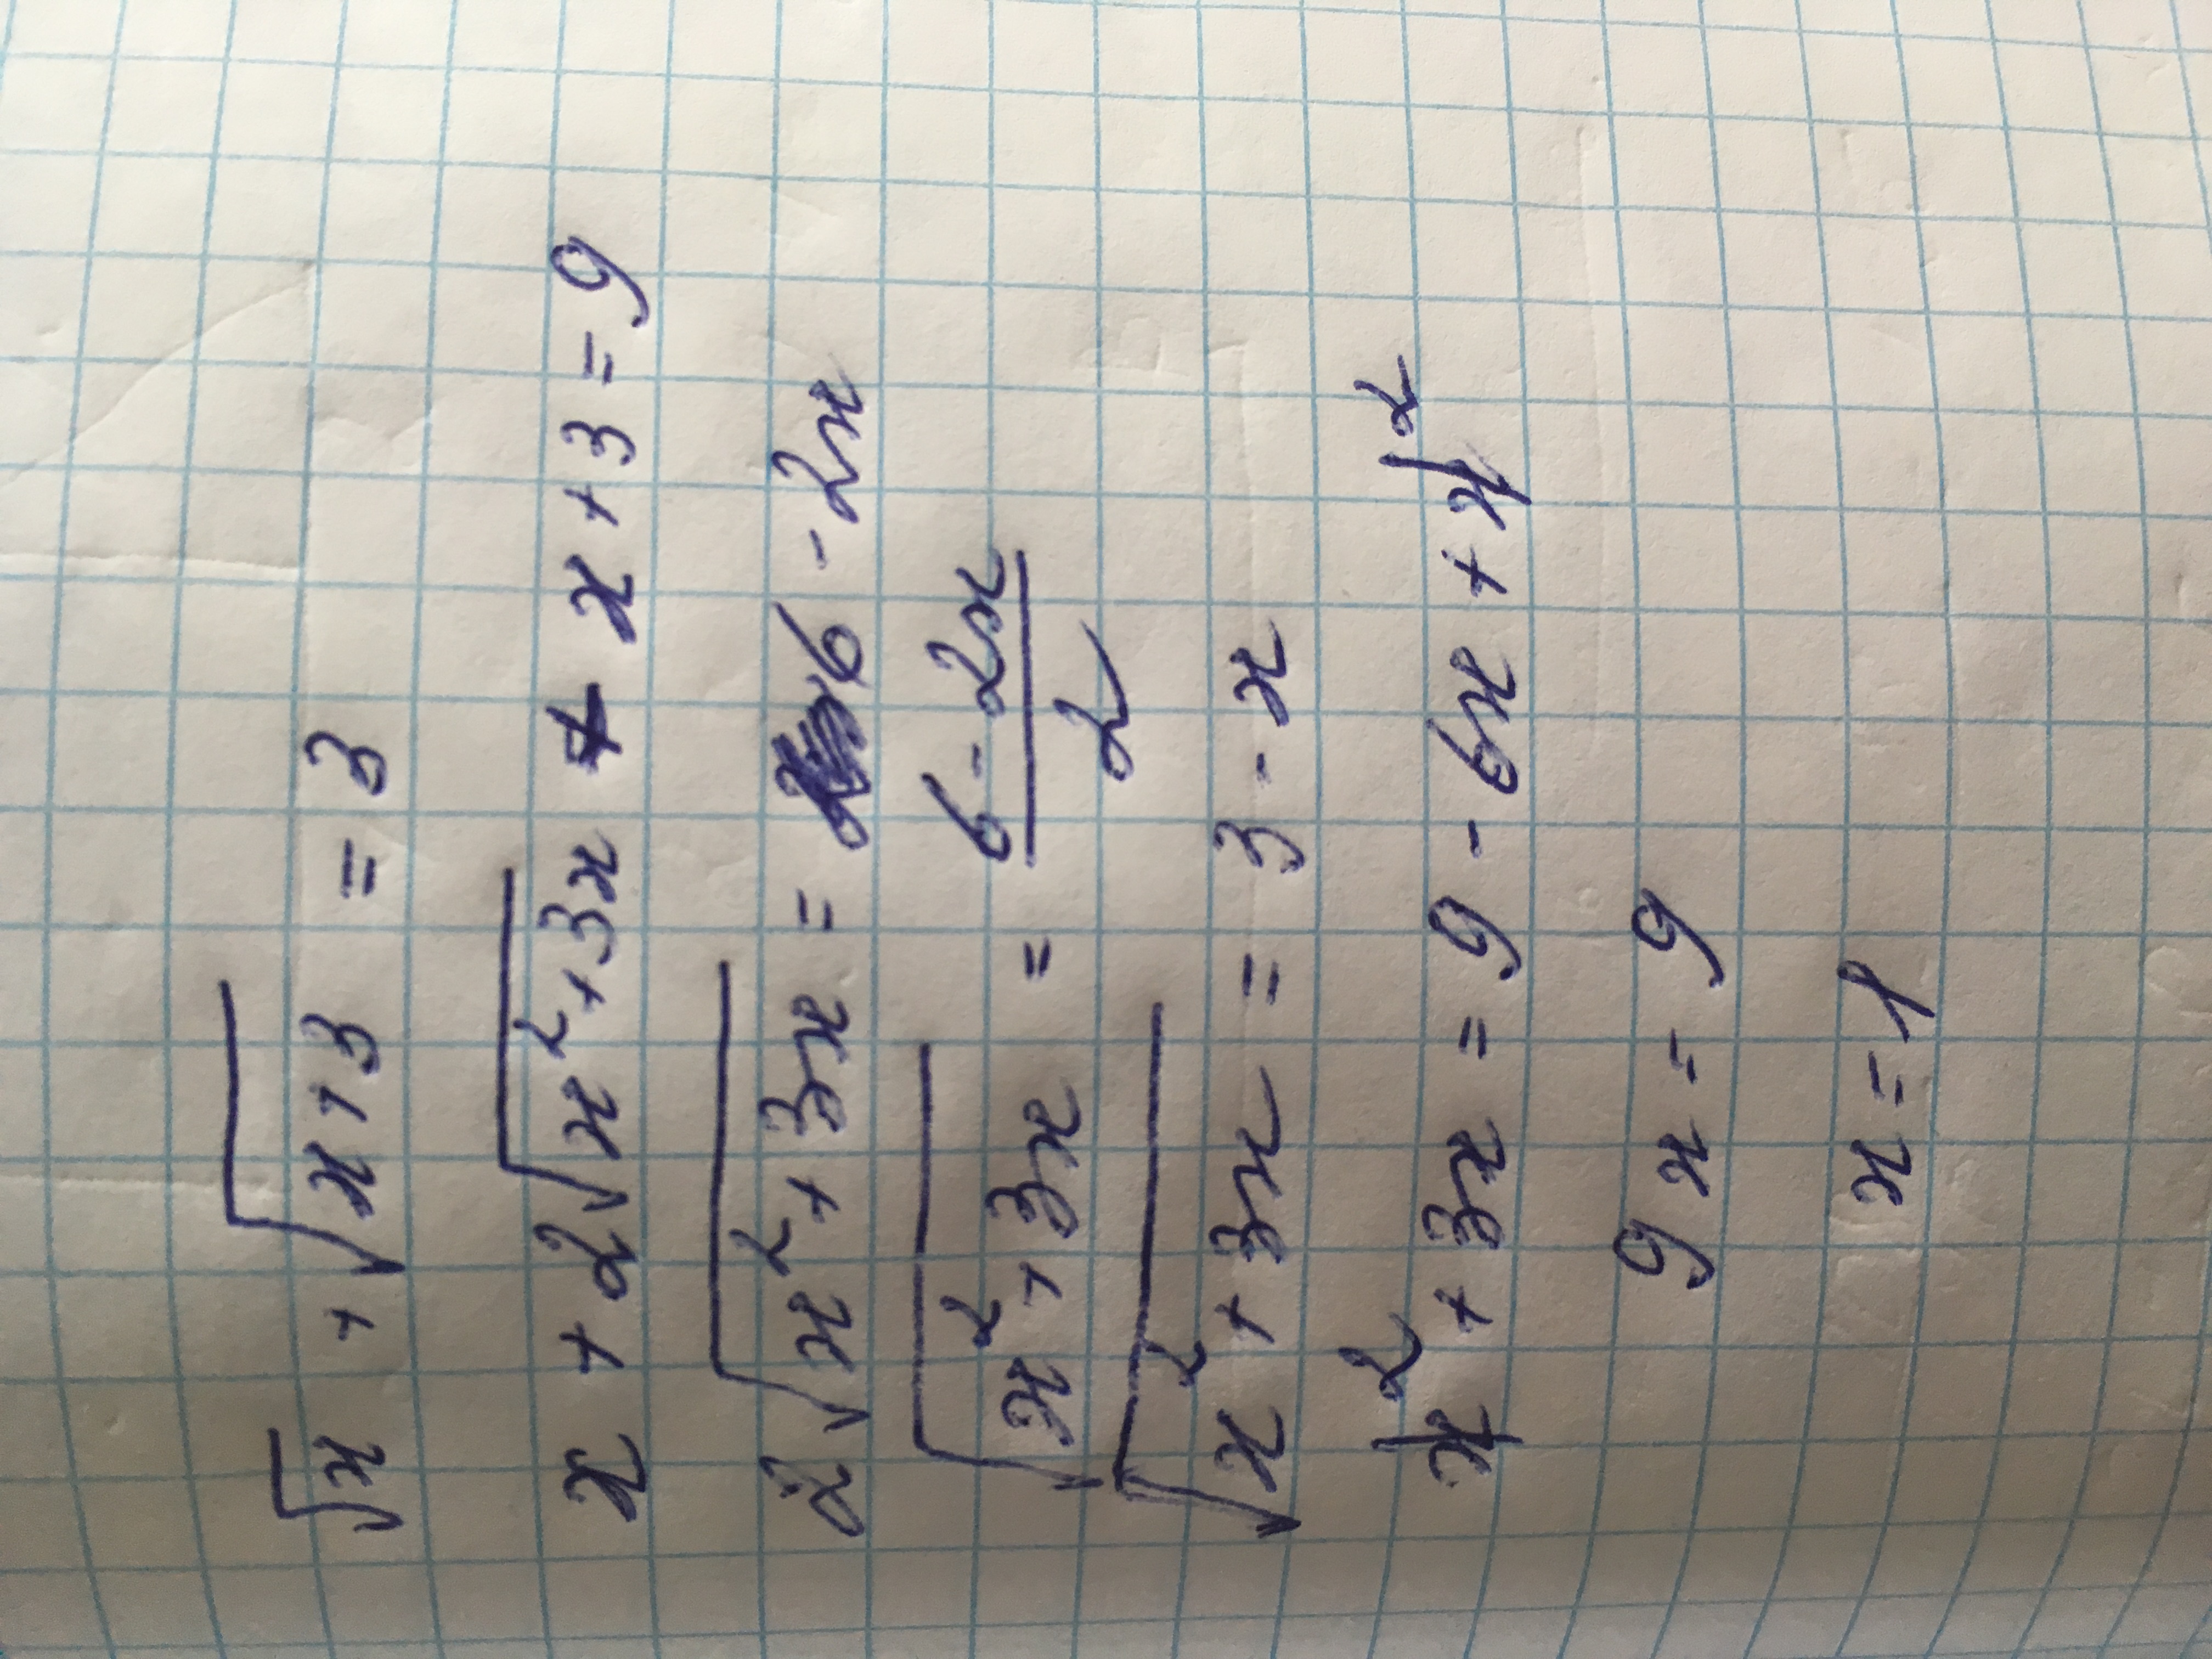 √x + √x+3 = 3
x + 2√x²+3x + x+3=9
2√x²+3x = 6-2x
√x²+3x = 6-2x/2
√x²+3x = 3-x
x²+3x = 9-6x+x²
9x=9
x=1